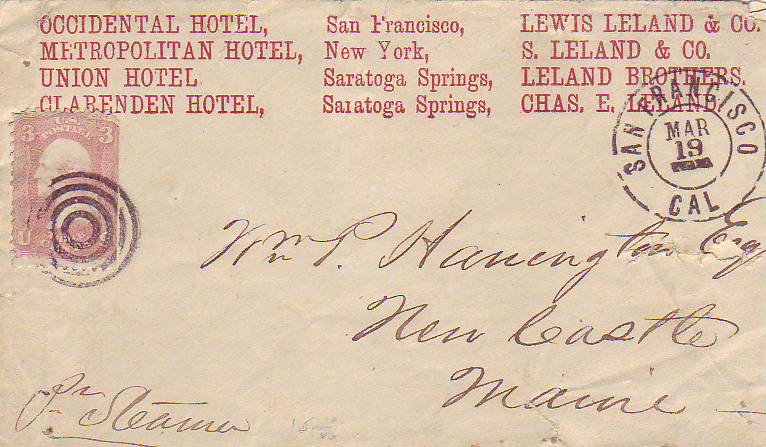 OCCIDENTAL HOTEL, San Francisco, LEWIS LELAND & CO.
METROPOLITAN HOTEL, New York, S. LELAND & CO.
UNION HOTEL Saratoga Springs, LELAND BROTHERS.
CLARENDEN HOTEL, Saratoga Springs, CHAS. E. LELAND.
3 U.S. 3
POSTAGE
U S
SAN FRANCISCO
MAR
19
CAL
Wm P. Harrington Esq
New Castle
Maine
Pr Steamer